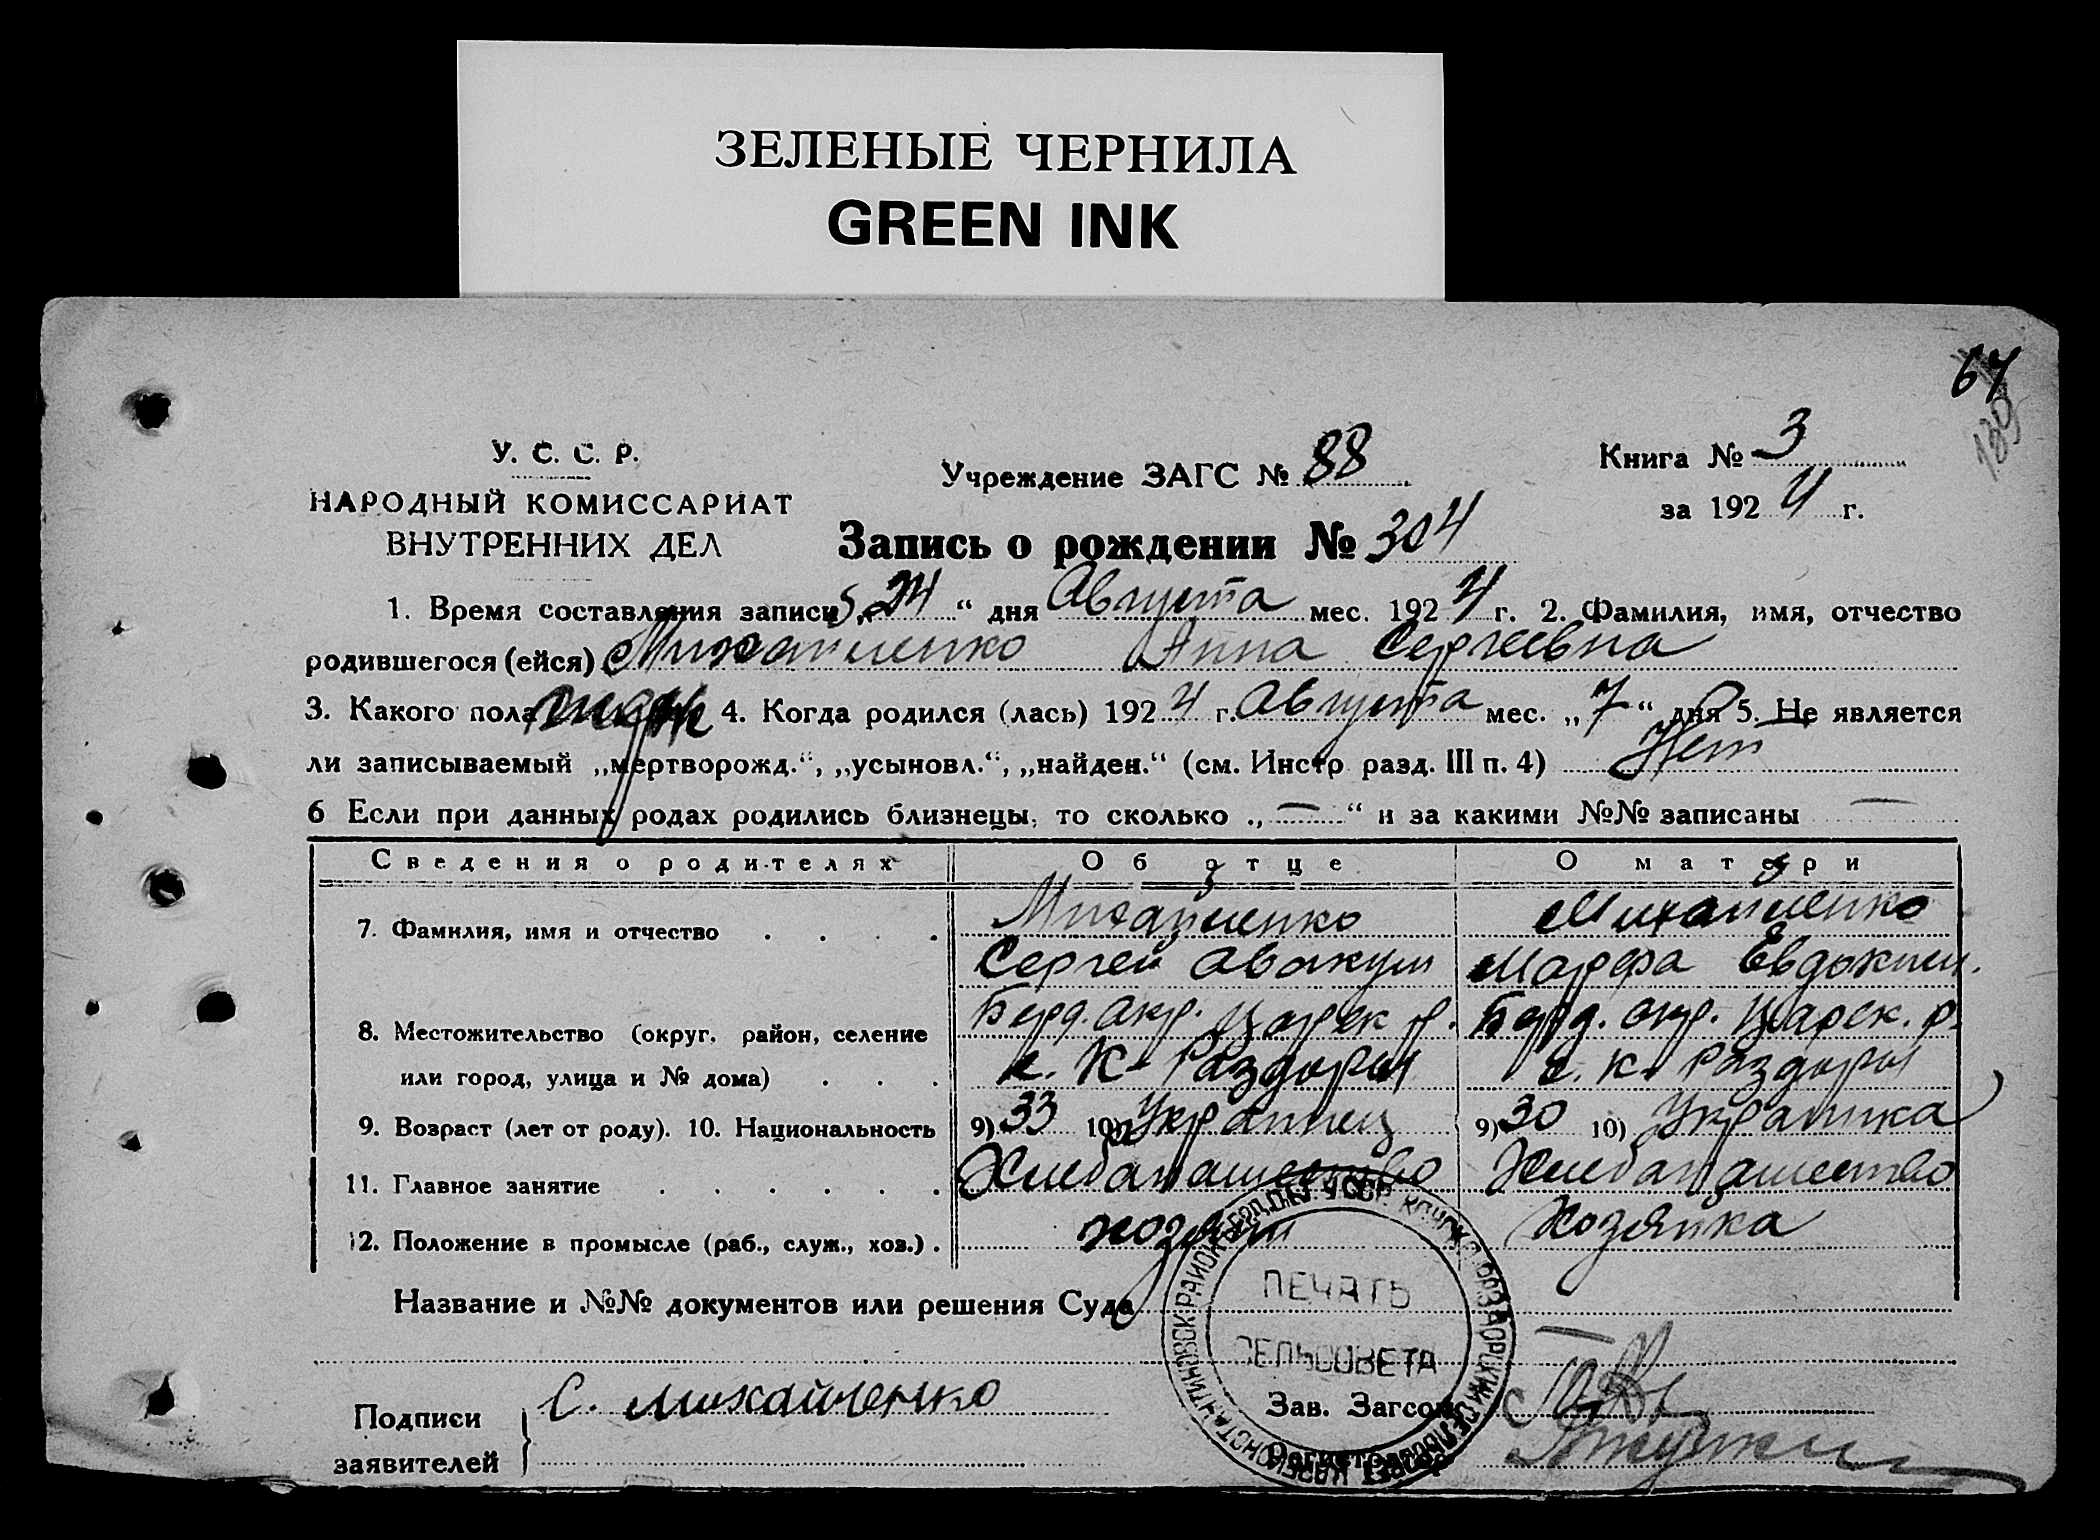 ЗЕЛЕНЫЕ ЧЕРНИЛА
GREEN INK
64
У. С. С. Р.
НАРОДНЫЙ КОМИССАРИАТ
ВНУТРЕННИХ ДЕЛ
Учреждение ЗАГС № 88
Книга № 3
за 1924 г.
Запись о рождении № 304
1. Время составления записи „24“ дня Августа мес. 1924 г. 2. Фамилия, имя, отчество
родившегося (ейся) Михайленко Анна Сергеевна
3. Какого пола 4. Когда родился (лась) 1924 г. Августа мес. „7“ дня 5. Не является
ли записываемый „мертворожд.“, „усыновл.“, „найден.“ (см. Инстр разд. III п. 4) Нет
6 Если при данных родах родились близнецы, то сколько „—“ и за какими №№ записаны —
Сведения о родителях Об отце О матери
7. Фамилия, имя и отчество Михайленко Михайленко
Сергей Авакум Марфа Евдоким.
8. Местожительство (округ, район, селение Берд. окр. Царек. р. Берд. окр. Царек. р.
или город, улица и № дома) с. К- Раздоры с. К- Раздоры
9. Возраст (лет от роду). 10. Национальность 9) 33 10) Украинец 9) 30 10) Украинка
11. Главное занятие Хлебопашество Хлебопашество
12. Положение в промысле (раб., служ., хоз.) хозяин Хозяйка
Название и №№ документов или решения Суда
ПЕЧАТЬ
СЕЛЬСОВЕТА
Подписи
заявителей
С. Михайленко
Зав. Загсом
Регистратор